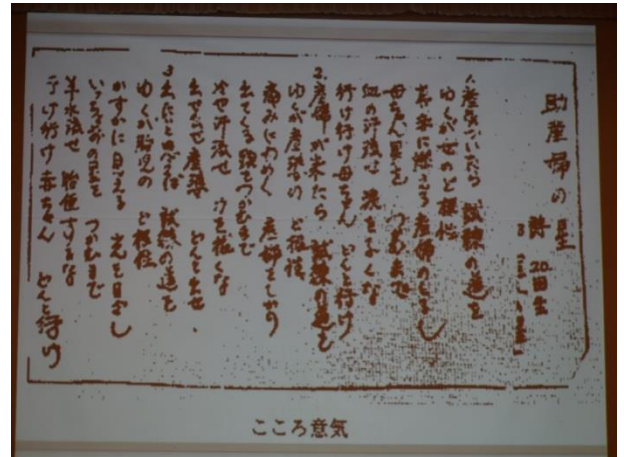 助産婦の星
詩 20回生
1.産気づいたら 試練の道を
ゆくが女のど根性
真赤に燃える 産婦のしるし
母ちゃんの星を つかむまで
血の汗流せ 涙をふくな
行け行け母ちゃん どんと行け
2.産婦が来たら 試練の道を
ゆくが産婆の ど根性
痛みにわめく 産婦をしかり
出てくる頭をつかむまで
冷や汗流せ 手を抜くな
出せ出せ産婆 どんと出せ
3.出たいと思えば 試練の道を
ゆくが胎児の ど根性
かすかに見える 光を目ざし
いっちょ前の星を つかむまで
羊水流せ 胎便するな
行け行け赤ちゃん どんと行け
こころ意気